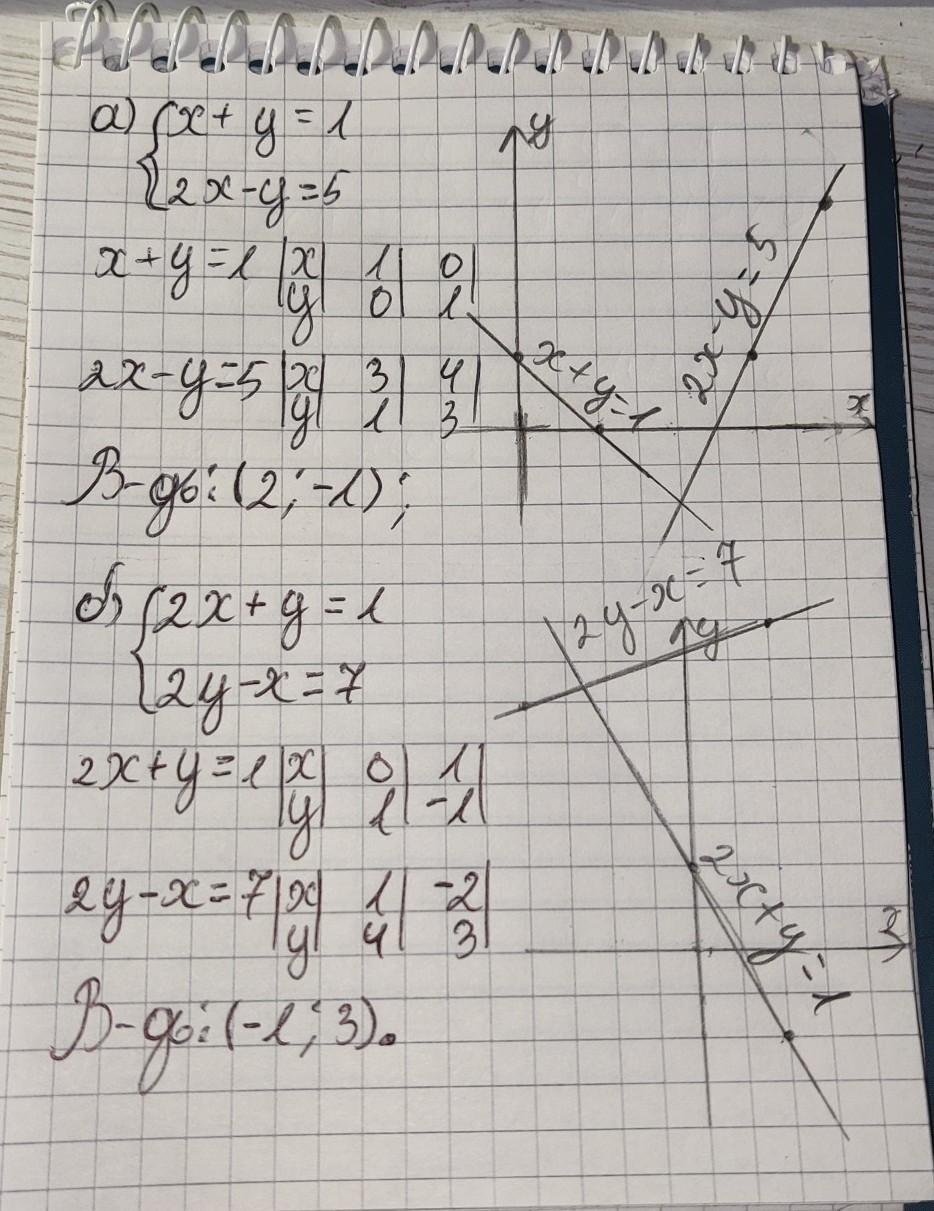 а) {x + y = 1
{2x - y = 5
x + y = 1 |x| 1| 0|
|y| 0| 1
2x - y = 5 |x| 3| 4|
|y| 1| 3
В-дь: (2; -1);
y
x + y = 1
2x - y = 5
x
б) {2x + y = 1
{2y - x = 7
2x + y = 1 |x| 0| 1|
|y| 1| -1|
2y - x = 7 |x| 1| -2|
|y| 4| 3|
В-дь: (-1; 3).
2y - x = 7
y
2x + y = 1
x